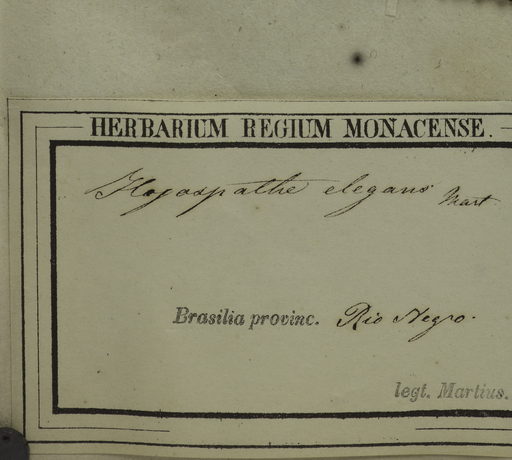 HERBARIUM REGIUM MONACENSE.
Hyospathe elegans Mart
Brasilia provinc. Rio Negro.
legt. Martius.